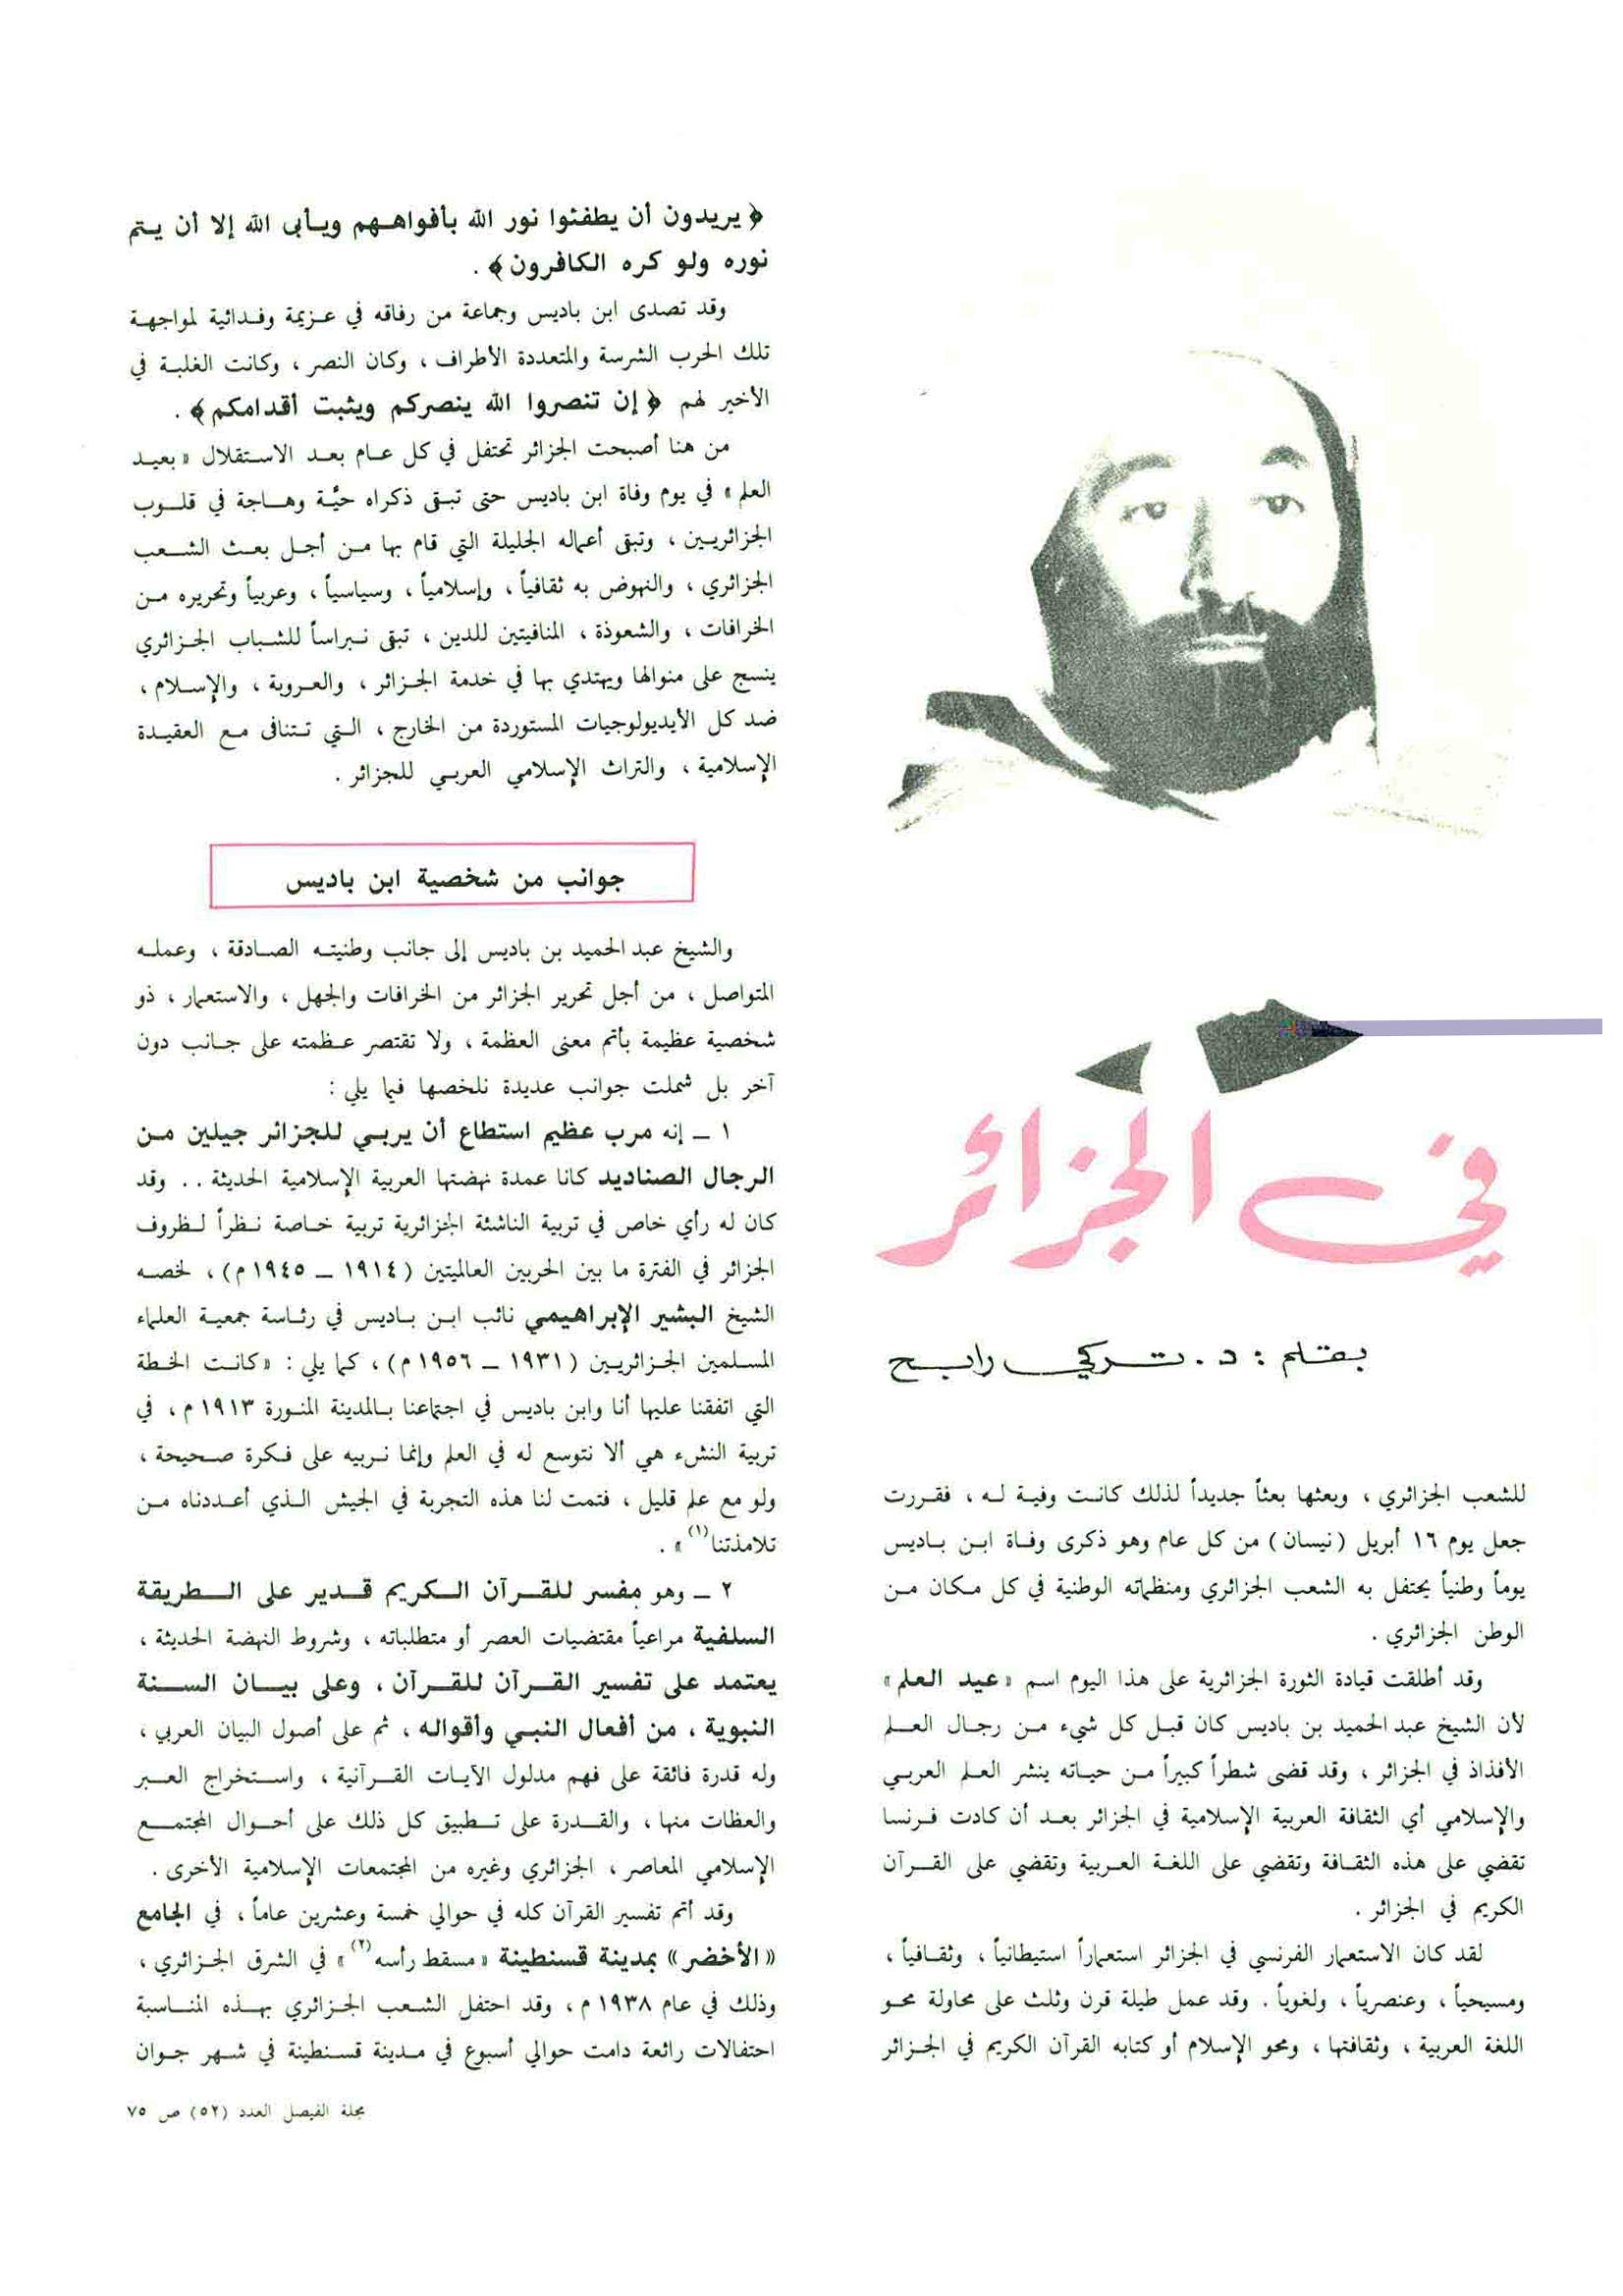 في الجزائر
بقلم : د. تركي رابح
للشعب الجزائري ، وبعثها بعثاً جديداً لذلك كانت وفية له ، فقررت
جعل يوم ١٦ أبريل (نيسان) من كل عام وهو ذكرى وفاة ابن باديس
يوماً وطنياً يحتفل به الشعب الجزائري ومنظماته الوطنية في كل مكان من
الوطن الجزائري .
وقد أطلقت قيادة الثورة الجزائرية على هذا اليوم اسم « عيد العلم »
لأن الشيخ عبد الحميد بن باديس كان قبل كل شيء من رجال العلم
الأفذاذ في الجزائر ، وقد قضى شطراً كبيراً من حياته ينشر العلم العربي
والإسلامي أي الثقافة العربية الإسلامية في الجزائر بعد أن كادت فرنسا
تقضي على هذه الثقافة وتقضي على اللغة العربية وتقضي على القرآن
الكريم في الجزائر .
لقد كان الاستعمار الفرنسي في الجزائر استعماراً استيطانياً ، وثقافياً ،
ومسيحياً ، وعنصرياً ، ولغوياً . وقد عمل طيلة قرن وثلث على محاولة محو
اللغة العربية ، وثقافتها ، ومحو الإسلام أو كتابه القرآن الكريم في الجزائر
﴿ يريدون أن يطفئوا نور الله بأفواههم ويأبى الله إلا أن يتم
نوره ولو كره الكافرون ﴾ .
وقد تصدى ابن باديس وجماعة من رفاقه في عزيمة وفدائية لمواجهة
تلك الحرب الشرسة والمتعددة الأطراف ، وكان النصر ، وكانت الغلبة في
الأخير لهم ﴿ إن تنصروا الله ينصركم ويثبت أقدامكم ﴾ .
من هنا أصبحت الجزائر تحتفل في كل عام بعد الاستقلال « بعيد
العلم » في يوم وفاة ابن باديس حتى تبقى ذكراه حيَّة وهاجة في قلوب
الجزائريين ، وتبقى أعماله الجليلة التي قام بها من أجل بعث الشعب
الجزائري ، والنهوض به ثقافياً ، وإسلامياً ، وسياسياً ، وعربياً وتحريره من
الخرافات ، والشعوذة ، المنافيتين للدين ، تبقى نبراساً للشباب الجزائري
ينسج على منوالها ويهتدي بها في خدمة الجزائر ، والعروبة ، والإسلام ،
ضد كل الأيديولوجيات المستوردة من الخارج ، التي تتنافى مع العقيدة
الإسلامية ، والتراث الإسلامي العربي للجزائر .
جوانب من شخصية ابن باديس
والشيخ عبد الحميد بن باديس إلى جانب وطنيته الصادقة ، وعمله
المتواصل ، من أجل تحرير الجزائر من الخرافات والجهل ، والاستعمار ، ذو
شخصية عظيمة بأتم معنى العظمة ، ولا تقتصر عظمته على جانب دون
آخر بل شملت جوانب عديدة نلخصها فيما يلي :
١ ـ إنه مرب عظيم استطاع أن يربي للجزائر جيلين من
الرجال الصناديد كانا عمدة نهضتها العربية الإسلامية الحديثة .. وقد
كان له رأي خاص في تربية الناشئة الجزائرية تربية خاصة نظراً لظروف
الجزائر في الفترة ما بين الحربين العالميتين (١٩١٤ ـ ١٩٤٥ م) ، لخصه
الشيخ البشير الإبراهيمي نائب ابن باديس في رئاسة جمعية العلماء
المسلمين الجزائريين (١٩٣١ ـ ١٩٥٦ م) ، كما يلي : « كانت الخطة
التي اتفقنا عليها أنا وابن باديس في اجتماعنا بالمدينة المنورة ١٩١٣ م ، في
تربية النشء هي ألا نتوسع له في العلم وإنما نربيه على فكرة صحيحة ،
ولو مع علم قليل ، فتمت لنا هذه التجربة في الجيش الذي أعددناه من
تلامذتنا(١) » .
٢ ـ وهو مفسر للقرآن الكريم قدير على الطريقة
السلفية مراعياً مقتضيات العصر أو متطلباته ، وشروط النهضة الحديثة ،
يعتمد على تفسير القرآن للقرآن ، وعلى بيان السنة
النبوية ، من أفعال النبي وأقواله ، ثم على أصول البيان العربي ،
وله قدرة فائقة على فهم مدلول الآيات القرآنية ، واستخراج العبر
والعظات منها ، والقدرة على تطبيق كل ذلك على أحوال المجتمع
الإسلامي المعاصر ، الجزائري وغيره من المجتمعات الإسلامية الأخرى .
وقد أتم تفسير القرآن كله في حوالي خمسة وعشرين عاماً ، في الجامع
« الأخضر » بمدينة قسنطينة « مسقط رأسه(٢) » في الشرق الجزائري ،
وذلك في عام ١٩٣٨ م ، وقد احتفل الشعب الجزائري بهذه المناسبة
احتفالات رائعة دامت حوالي أسبوع في مدينة قسنطينة في شهر جوان
مجلة الفيصل العدد (٥٢) ص ٧٥